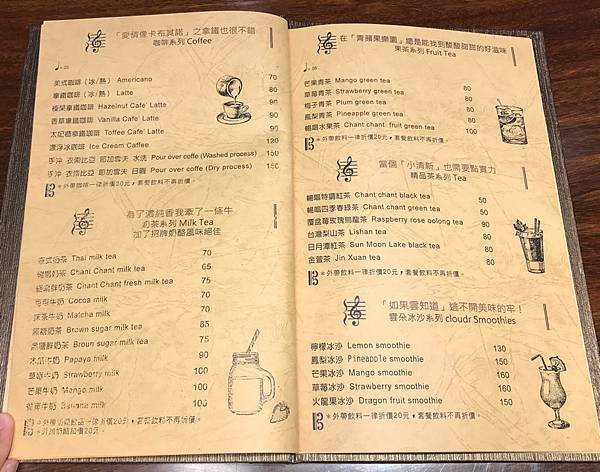 「愛情像卡布其諾」之拿鐵也很不錯
咖啡系列 Coffee
♩=85
美式咖啡 (冰/熱) Americano 70
拿鐵咖啡 (冰/熱) Latte 80
榛果拿鐵咖啡 Hazelnut Cafe' Latte 90
香草拿鐵咖啡 Vanilla Cafe' Latte 90
太妃糖拿鐵咖啡 Toffee Cafe' Latte 90
漂浮冰咖啡 Ice Cream Caffee 120
手沖 衣索比亞 耶加雪夫 水洗 Pour over coffe (Washed process) 150
手沖 衣索比亞 耶加雪夫 日曬 Pour over coffe (Dry process) 150
*外帶咖啡一律折價20元，套餐飲料不再折價。
為了濃純香我牽了一條牛
奶茶系列 Milk Tea
加了招牌奶酪風味絕佳
泰式奶茶 Thai milk tea 70
暢唱奶茶 Chant Chant milk tea 65
極品鮮奶茶 Chant Chant fresh milk tea 75
可可牛奶 Cocoa milk 70
抹茶牛奶 Matcha milk 70
黑糖奶茶 Broun sugar milk tea 65
黑糖鮮奶茶 Broun sugar milk tea 75
木瓜牛奶 Papaya milk 90
草莓牛奶 Strawberry milk 100
芒果牛奶 Mango milk 100
香蕉牛奶 Banana milk 100
*外帶奶類飲品一律折價20元，套餐飲料不再折價。
*外加奶酪加價20元。
在「青蘋果樂園」總是能找到酸酸甜甜的好滋味
果茶系列 Fruit Tea
♩=85
芒果青茶 Mango green tea
草莓青茶 Strawberry green tea 80
梅子青茶 Plum green tea 80
鳳梨青茶 Pineapple green tea 80
暢唱水果茶 Chant chant fruit green tea 100
*外帶飲料一律折價20元，套餐飲料不再折價。
當個「小清新」也需要點實力
精品茶系列 Tea
暢唱特調紅茶 Chant chant black tea 50
暢唱四季春綠茶 Chant chant green tea 50
覆盆莓玫瑰烏龍茶 Raspberry rose oolong tea 90
台灣梨山茶 Lishan tea 80
日月潭紅茶 Sun Moon Lake black tea 80
金萱茶 Jin Xuan tea 80
*外帶飲料一律折價20元，套餐飲料不再折價。
「如果雲知道」這不開美味的牢！
雲朵冰沙系列 cloudr Smoothies
檸檬冰沙 Lemon smoothie 130
鳳梨冰沙 Pineapple smoothie 150
芒果冰沙 Mango smoothie 160
草莓冰沙 Strawberry smoothie 160
火龍果冰沙 Dragon fruit smoothie 150
*外帶飲料一律折價20元，套餐飲料不再折價。